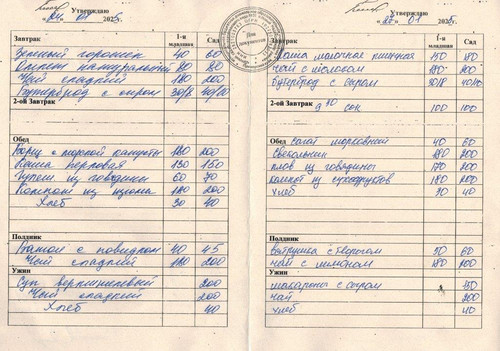 Утверждаю
1-я младшая
Сад
Завтрак
Зеленый горошек 40 60
Омлет натуральный 80
Чай сладкий 180 200
Бутерброд с сыром 30/8 40/10
2-ой Завтрак
Обед
Борщ с морской капусты 180 200
Каша перловая 130 150
Гуляш из говядины 60 70
Компот из изюма 180 200
Хлеб 30 40
Полдник
Батон с повидлом 40 45
Чай сладкий 180 200
Ужин
Суп вермишелевый 200
Чай сладкий 200
Хлеб 40
Для документов
Утверждаю
« 27 » 01
1-я младшая
Сад
Завтрак
Каша молочная пшенная 150 180
Чай с молоком 180 200
Бутерброд с сыром 30/8 40/10
2-ой Завтрак сок 100 100
Обед Салат морковный 40 60
Свекольник 180 200
плов из говядины 170 200
компот из сухофруктов 180 200
хлеб 30 40
Полдник
ватрушка с творогом 50 60
чай с лимоном 180 200
Ужин
макароны с сыром
чай 200
хлеб 40